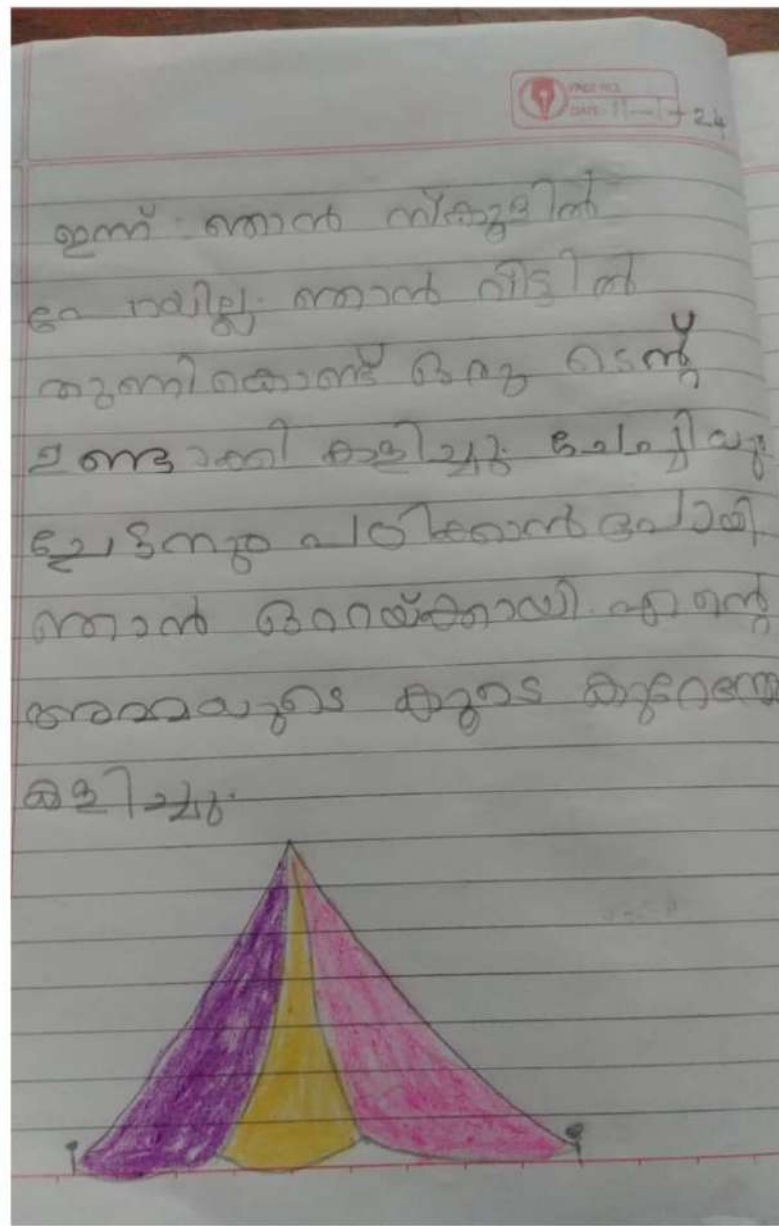 PAGE NO.
DATE: 11-1-24
ഇന്ന് ഞാൻ സ്കൂളിൽ
പോയില്ല. ഞാൻ വീട്ടിൽ
തുണികൊണ്ട് ഒരു ടെന്റ്
ഉണ്ടാക്കി കളിച്ചു. ചേച്ചിയും
ചേട്ടനും പഠിക്കാൻ പോയി
ഞാൻ ഒറ്റയ്ക്കായി. എന്റെ
അമ്മയുടെ കൂടെ കുറേനേരം
കളിച്ചു.